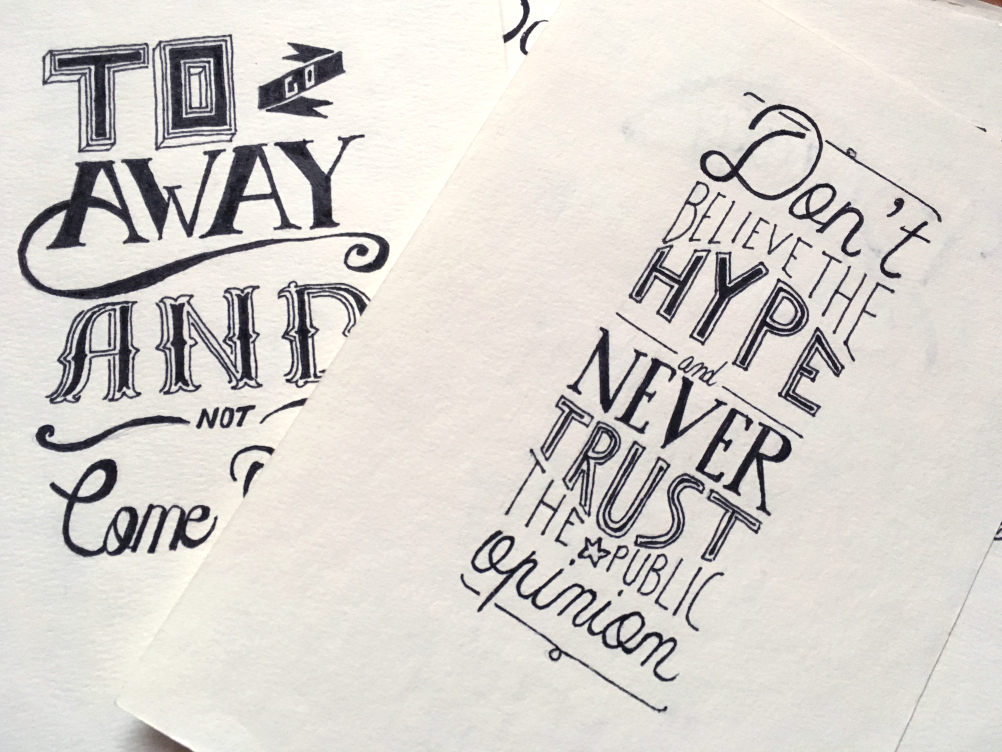 TO GO
AWAY
AND
NOT
Come
Don't
BELIEVE THE
HYPE
and
NEVER
TRUST
THE PUBLIC
opinion